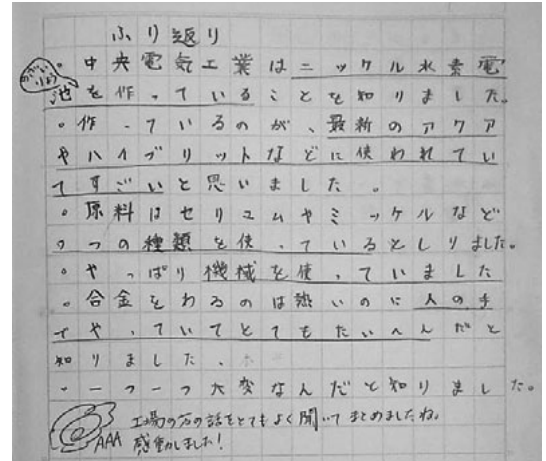 ふり返り
。中央電気工業はニッケル水素電
池を作っていることを知りました。
。作っているのが、最新のアクア
やハイブリットなどに使われてい
てすごいと思いました。
。原料はセリユムやミッケルなど
つの種類を使っているとしりました。
。やっぱり機械を使っていました
。合金をわるのは熱いのに人の手
でやっていてとてもたいへんだと
知りました。
・一つ一つ大変なんだと知りました。
工場の方の話をとてもよく聞いてまとめましたね。
AAA 感動しました!